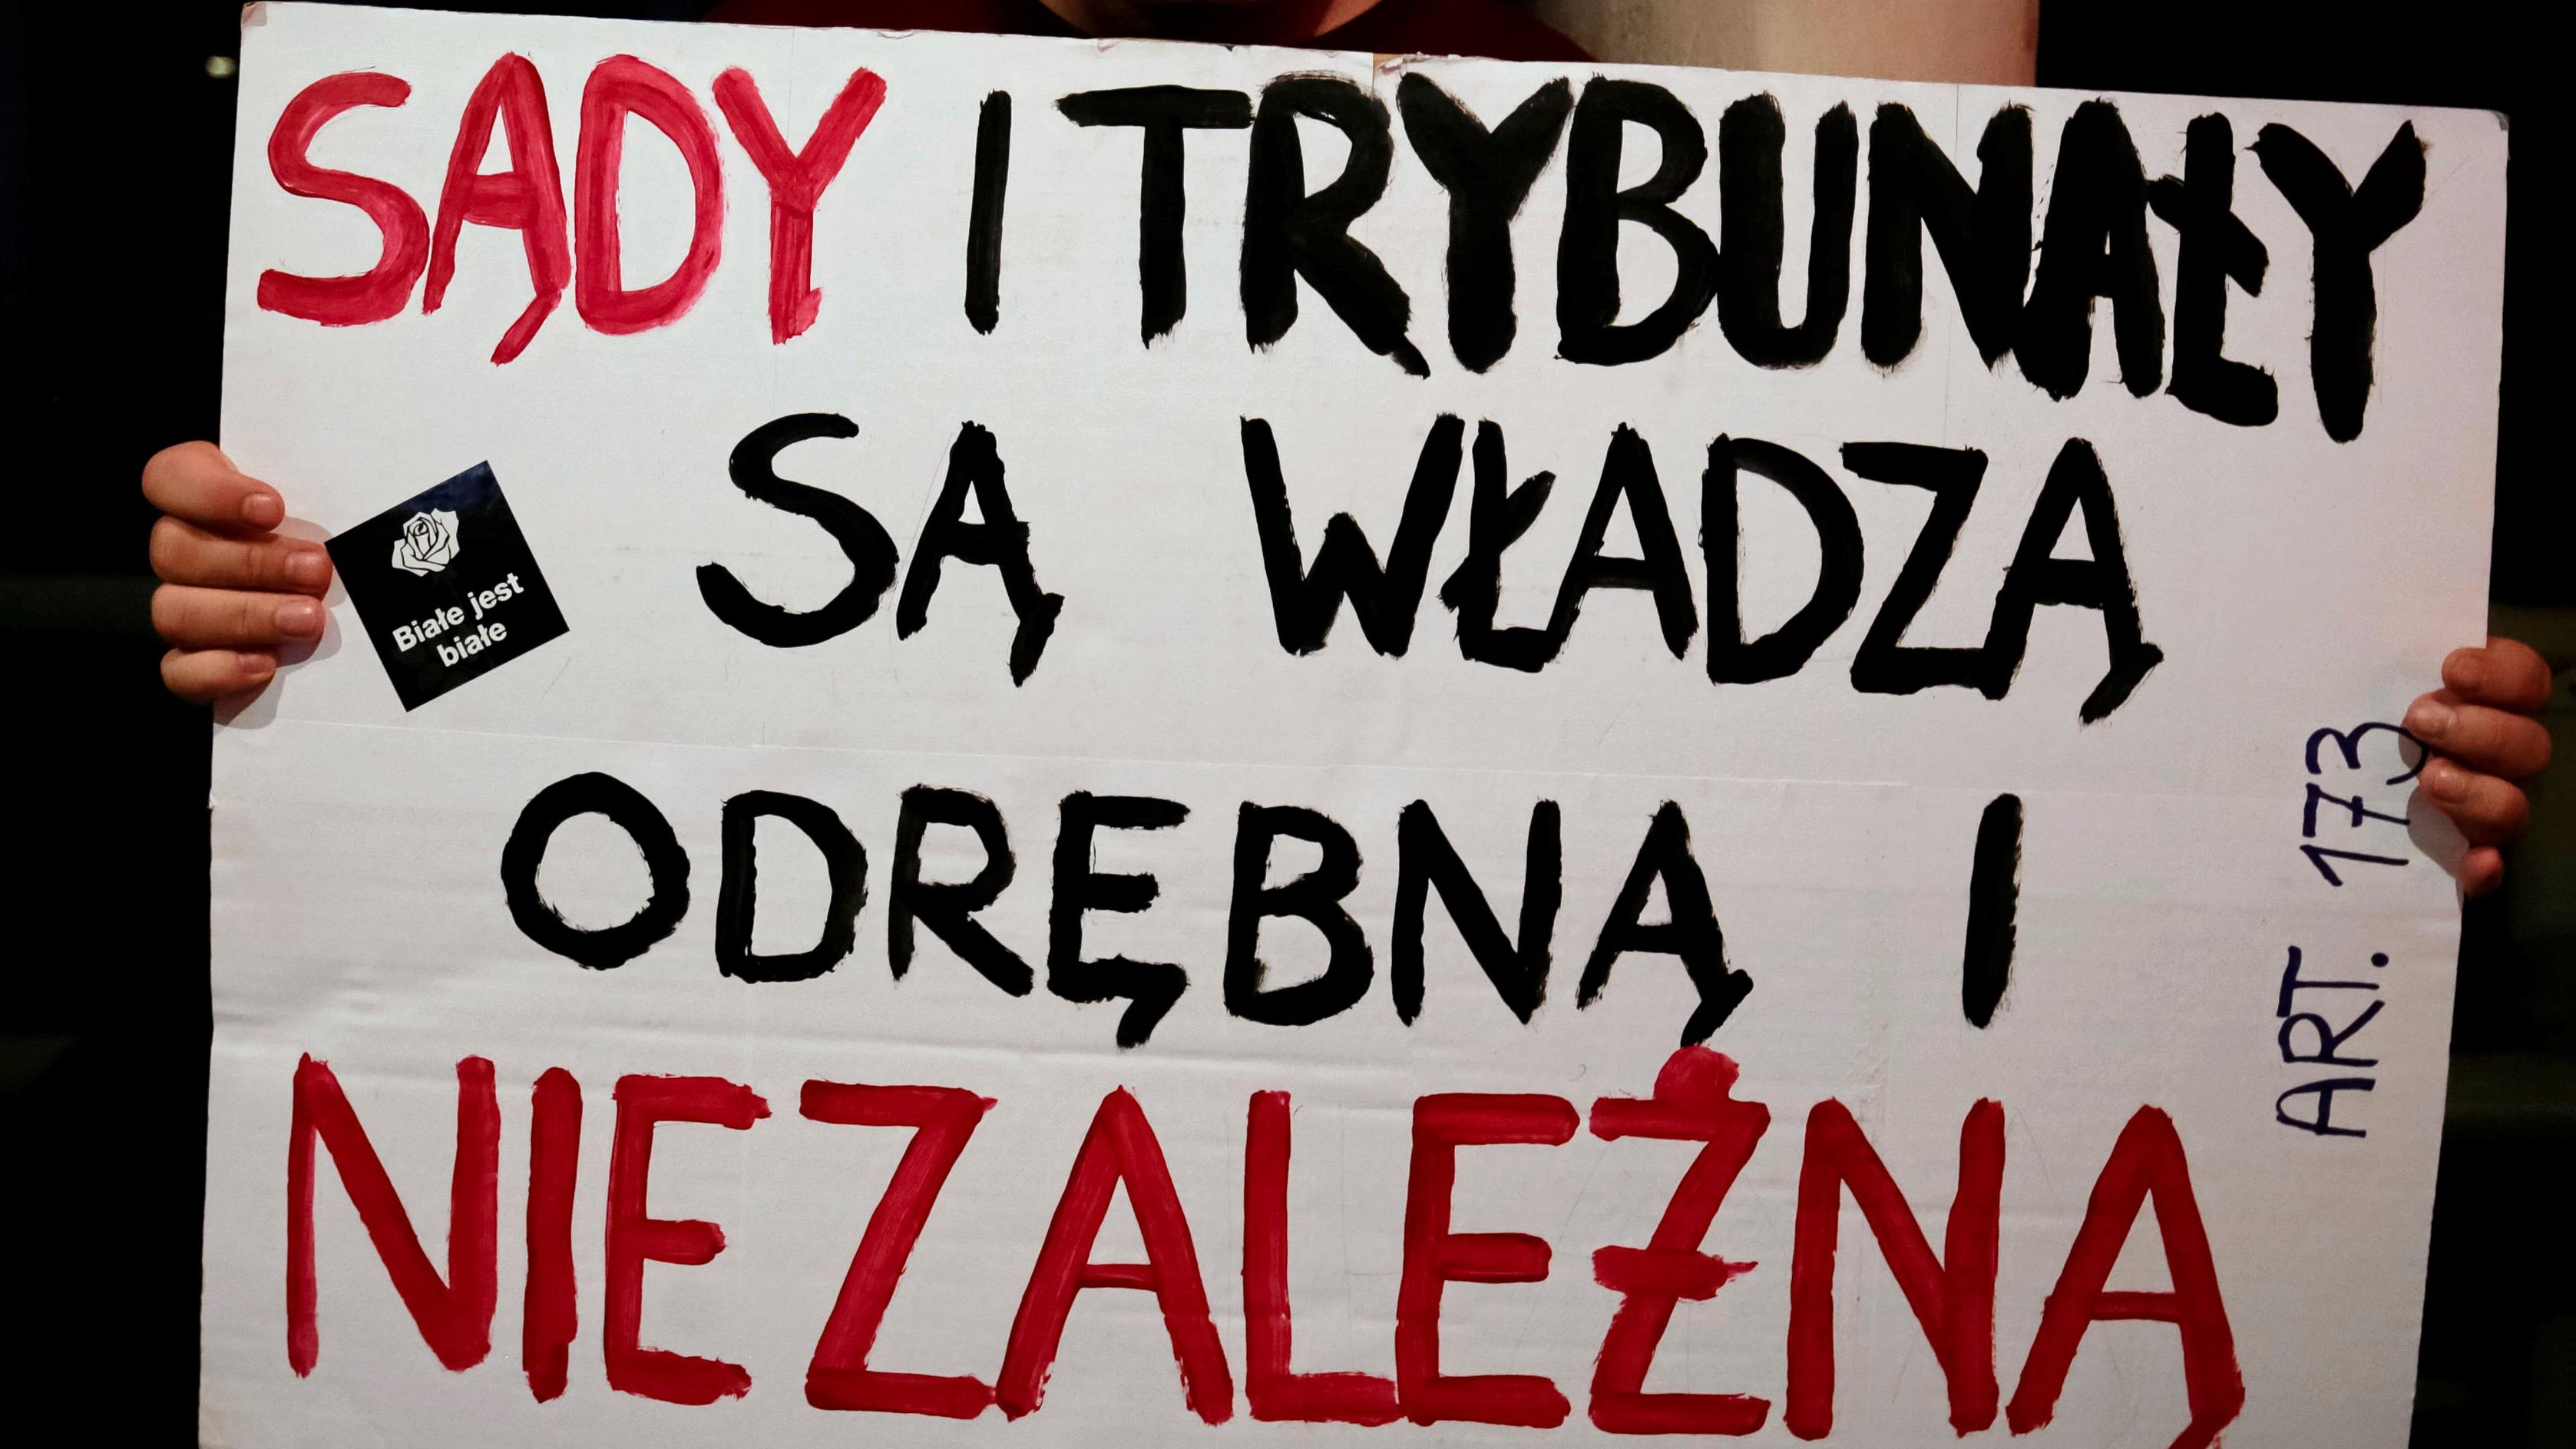 SĄDY I TRYBUNAŁY
SĄ WŁADZĄ
ODRĘBNĄ I
NIEZALEŻNĄ
Białe jest
białe
ART. 173